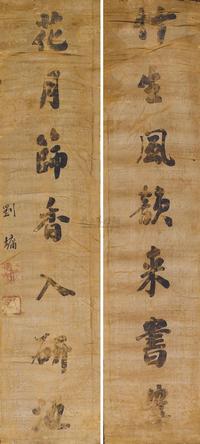 竹生風韻來書
花月篩香入研池
劉墉